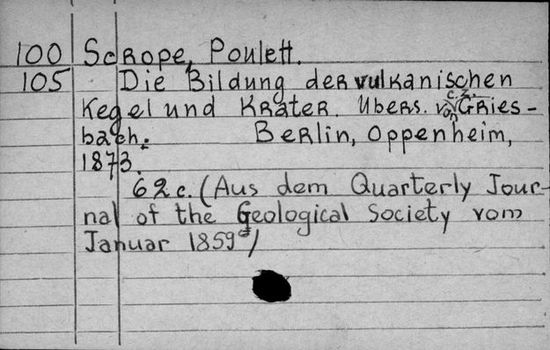 100 Scrope, Poulett.
105 Die Bildung der vulkanischen
Kegel und Krater. Übers. von C. Z. Gries-
bach. Berlin, Oppenheim,
1873.
62 c. (Aus dem Quarterly Jour-
nal of the Geological Society vom
Januar 1859)